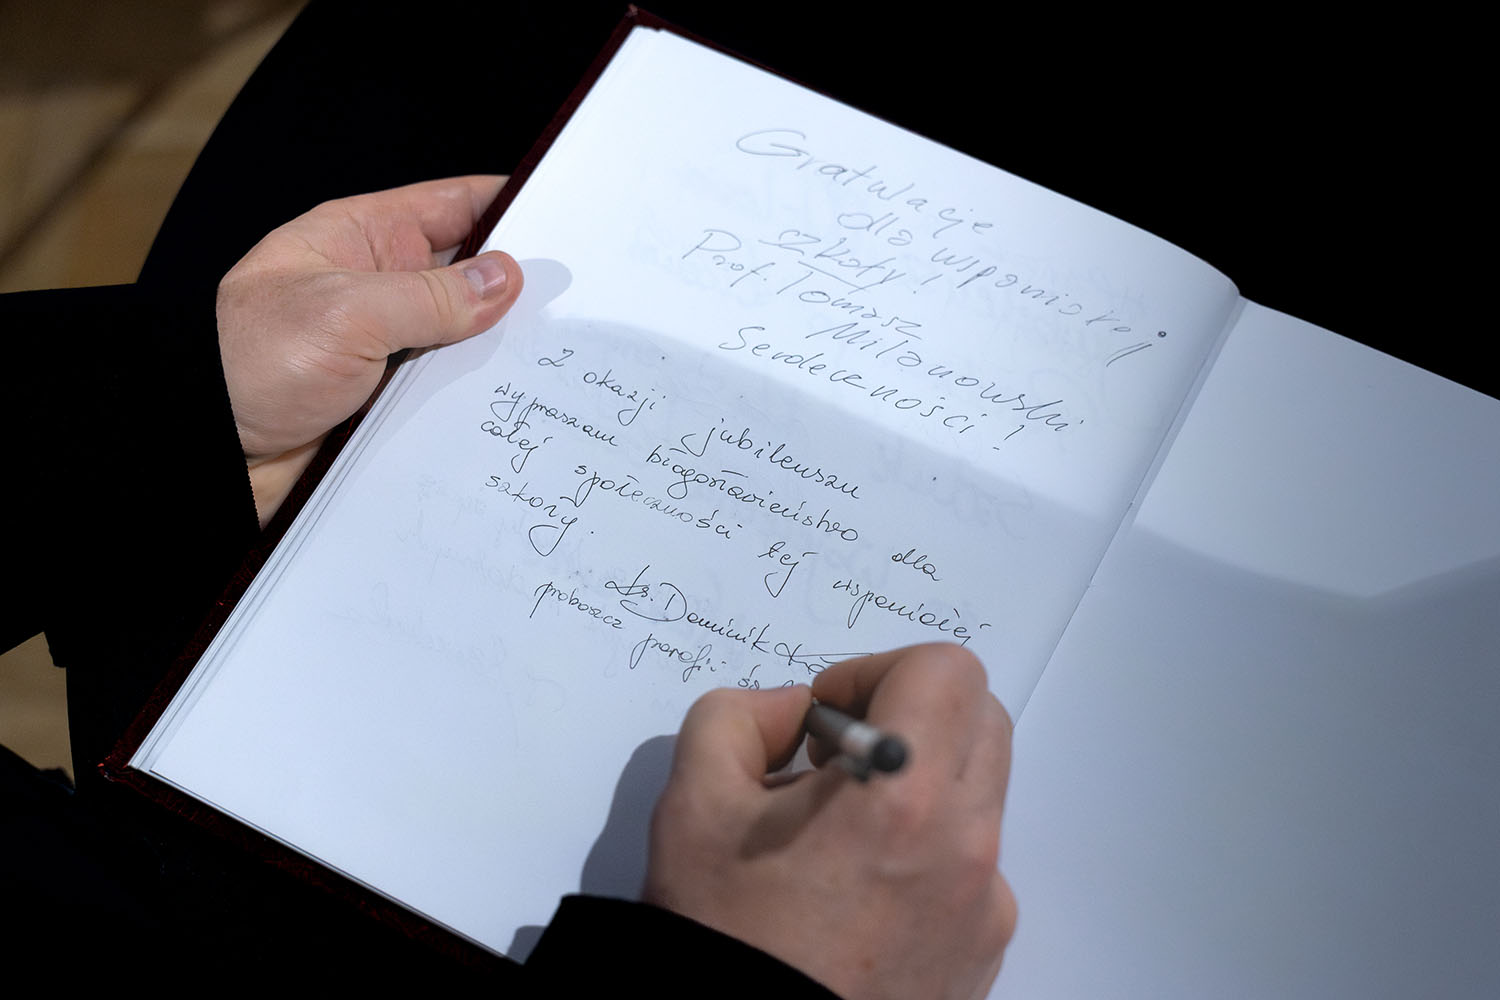 Gratulacje
dla wspaniałej
szkoły!
Prof. Tomasz
Miłanowski
Serdeczności!
Z okazji jubileuszu
wypraszam błogosławieństwo dla
całej społeczności tej wspaniałej
szkoły.
ks. Dominik
proboszcz parafii św.